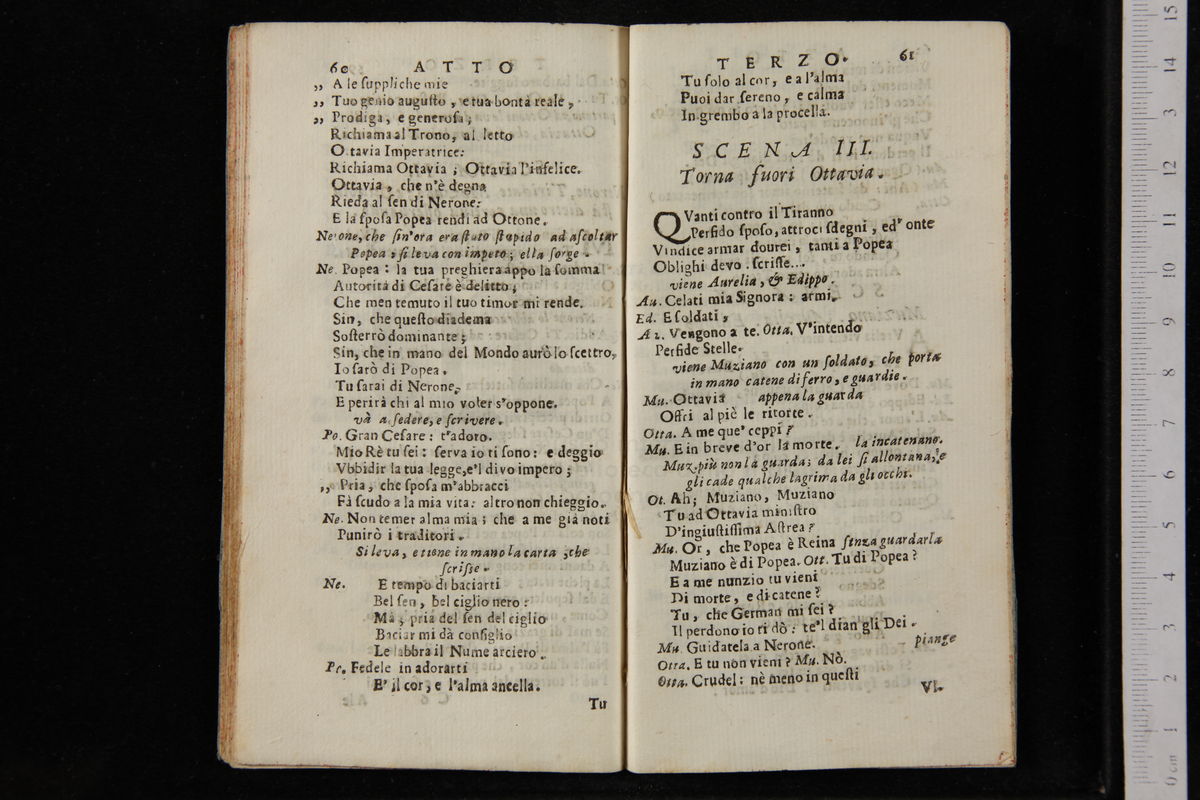 60 ATTO
„ A le ſuppliche mie
„ Tuo genio auguſto, e tua bontà reale,
„ Prodiga, e generoſa;
Richiama al Trono, al letto
Ottavia Imperatrice:
Richiama Ottavia; Ottavia l'infelice.
Ottavia, che n'è degna
Rieda al ſen di Nerone:
E la ſpoſa Popea rendi ad Ottone.
Nerone, che ſin'ora era ſtato ſtupido ad aſcoltar
Popea, ſi leva con impeto; ella ſorge.
Ne. Popea: la tua preghiera appo la ſomma
Autorità di Ceſare è delitto;
Che men temuto il tuo timor mi rende.
Sin, che queſto diadema
Soſterrò dominante;
Sin, che in mano del Mondo aurò lo ſcettro,
Io ſarò di Popea.
Tu ſarai di Nerone,
E perirà chi al mio voler s'oppone.
và a ſedere, e ſcrivere.
Po. Gran Ceſare: t'adoro.
Mio Rè tu ſei: ſerva io ti ſono: e deggio
Vbbidir la tua legge, e'l divo impero;
„ Pria, che ſpoſa m'abbracci
Fà ſcudo a la mia vita: altro non chieggio.
Ne. Non temer alma mia; che a me già noti
Punirò i traditori.
Si leva, e tiene in mano la carta, che
ſcriſſe.
Ne. E tempo di baciarti
Bel ſen, bel ciglio nero:
Mà, pria del ſen del ciglio
Baciar mi dà conſiglio
Le labbra il Nume arciero.
Po. Fedele in adorarti
E' il cor, e l'alma ancella.
Tu
TERZO. 61
Tu ſolo al cor, e a l'alma
Puoi dar ſereno, e calma
In grembo a la procella.
SCENA III.
Torna fuori Ottavia.
QVanti contro il Tiranno
Perfido ſpoſo, attroci ſdegni, ed' onte
Vindice armar dourei, tanti a Popea
Oblighi devo. ſcriſſe...
viene Aurelia, & Edippo.
Au. Celati mia Signora: armi.
Ed. E ſoldati,
Au. Vengono a te. Otta. V'intendo
Perfide Stelle.
viene Muziano con un ſoldato, che porta
in mano catene di ferro, e guardie.
Mu. Ottavia appena la guarda
Offri al piè le ritorte.
Otta. A me que' ceppi?
Mu. E in breve d'or la morte. la incatenano.
Muz. più non la guarda; da lei ſi allontana, e
gli cade qualche lagrima da gli occhi.
Ot. Ah; Muziano, Muziano
Tu ad Ottavia miniſtro
D'ingiuſtiſſima Aſtrea?
Mu. Or, che Popea è Reina ſenza guardarla
Muziano è di Popea. Ott. Tu di Popea?
E a me nunzio tu vieni
Di morte, e di catene?
Tu, che German mi ſei?
Il perdono io ti dò: te'l dian gli Dei.
Mu. Guidatela a Nerone. piange
Otta. E tu non vieni? Mu. Nò.
Otta. Crudel: nè meno in queſti
Vl-